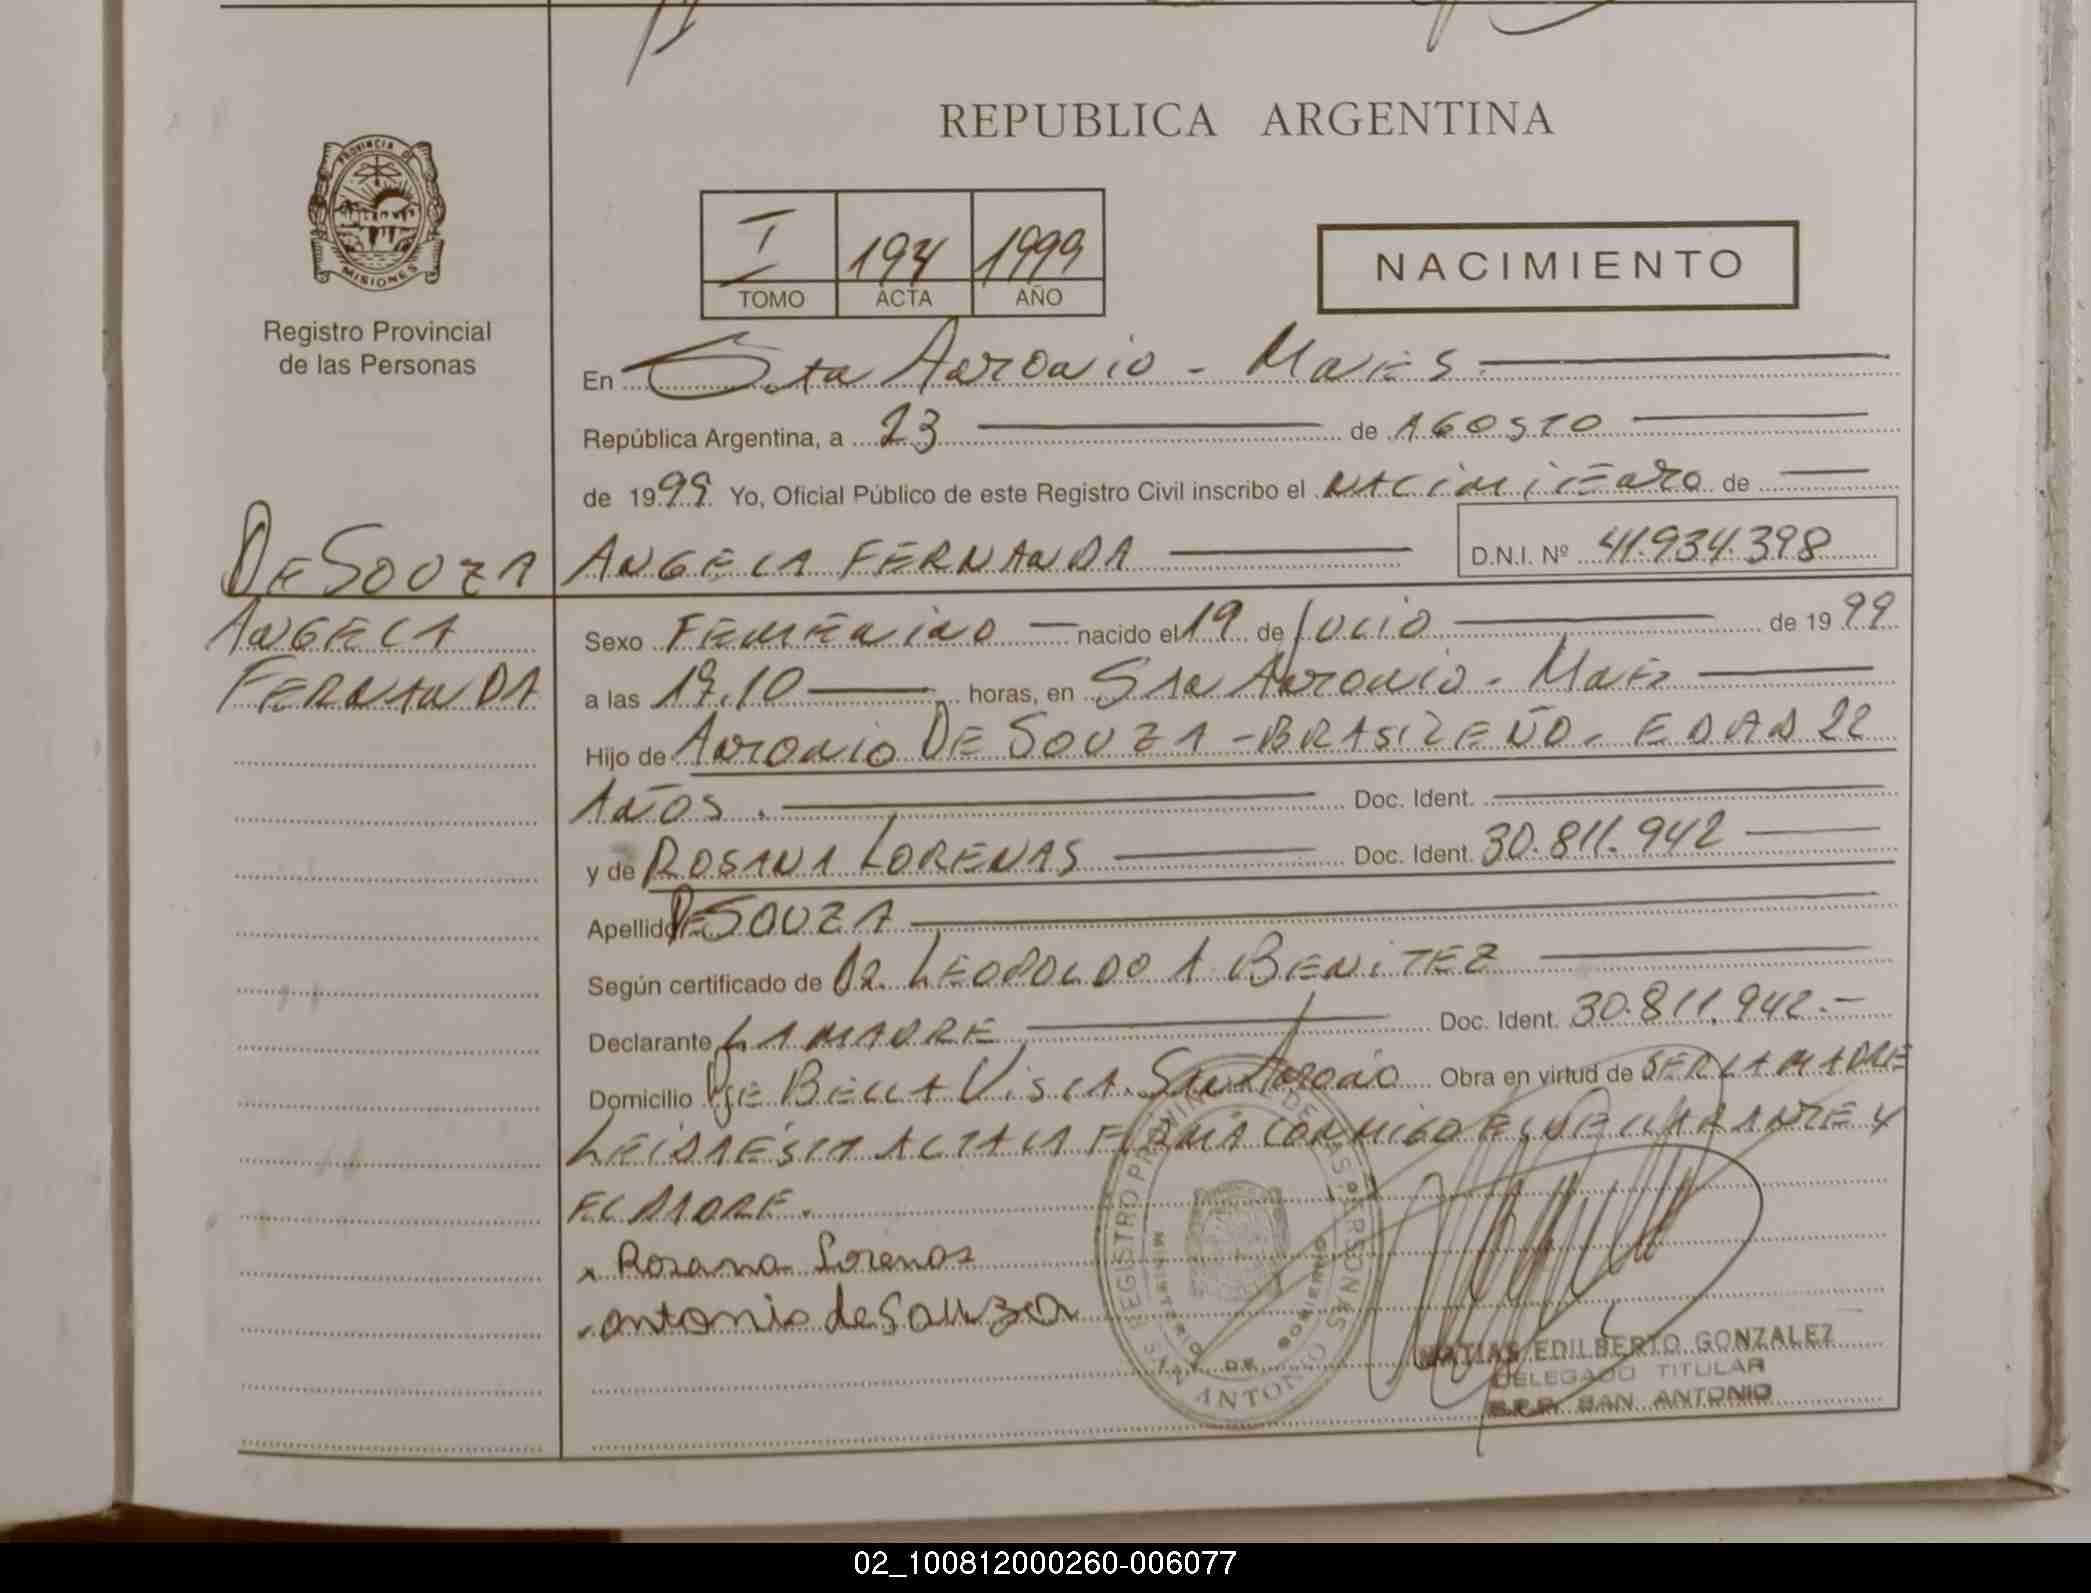 REPUBLICA ARGENTINA
PROVINCIA DE
MISIONES
Registro Provincial
de las Personas
I 194 1999
TOMO ACTA AÑO
NACIMIENTO
En Sta Antonio - Mnes
República Argentina, a 23 de AGOSTO
de 1999 Yo, Oficial Público de este Registro Civil inscribo el NACIMIENTO de
DE SOUZA ANGELA FERNANDA D.N.I. Nº 41.934.398
ANGELA
FERNANDA
Sexo FEMENINO nacido el 19 de JULIO de 1999
a las 19,10 horas, en Sta Antonio - Mnes
Hijo de ANTONIO DE SOUZA - BRASILEÑO. EDAD 22
AÑOS. Doc. Ident.
y de ROSANA LORENAS Doc. Ident. 30.811.942
Apellido DE SOUZA
Según certificado de DR. LEOPOLDO A BENITEZ
Declarante LA MADRE Doc. Ident. 30.811.942.-
Domicilio Pje BELLA VISTA. San Antonio Obra en virtud de SER LA MADRE
LEIDA ESTA ACTA LA FIRMA CONMIGO EL DECLARANTE Y
EL PADRE.
x Rosana Lorenas
antonio de Souza
REGISTRO PROVINCIAL DE LAS PERSONAS
MINISTERIO DE GOBIERNO
SAN ANTONIO
MATIAS EDILBERTO GONZALEZ
DELEGADO TITULAR
R.P.P. SAN ANTONIO
02_100812000260-006077